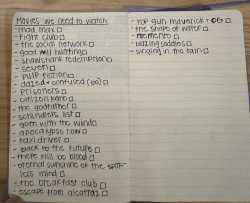 Movies we need to watch
- mad max
- fight club
- the social network
- good will hunting
- shawshank redemption
- seven
- pulp fiction
- dazed + confused
- prisoners
- citizen kane
- the godfather
- schindlers list
- gone with the wind
- apocalypse now
- taxi driver
- back to the future
- there will be blood
- eternal sunshine of the spot-
less mind
- the breakfast club
- escape from alcatraz
- top gun maverick + OG
- the shape of water
- memento
- blazing saddles
- singing in the rain